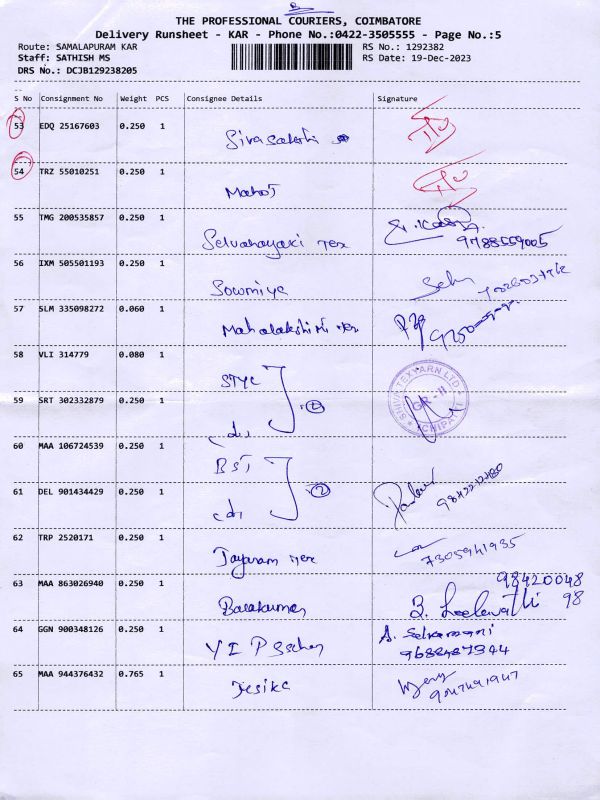 THE PROFESSIONAL COURIERS, COIMBATORE
Delivery Runsheet - KAR - Phone No.:0422-3505555 - Page No.:5
Route: SAMALAPURAM KAR RS No.: 1292382
Staff: SATHISH MS RS Date: 19-Dec-2023
DRS No.: DCJB129238205
S No Consignment No Weight PCS Consignee Details Signature
53 EDQ 25167603 0.250 1
Sivasakthi
54 TRZ 55010251 0.250 1
55 TMG 200535857 0.250 1
Selvanayaki Tex
56 IXM 505501193 0.250 1
Sowmiya
57 SLM 335098272 0.060 1
Mahalakshimi Tex
58 VLI 314779 0.080 1
59 SRT 302332879 0.250 1
2
SHIVA TEXYARN LTD
60 MAA 106724539 0.250 1
61 DEL 901434429 0.250 1
2
62 TRP 2520171 0.250 1
Jayaram Tex 7305941935
63 MAA 863026940 0.250 1
98420048
Balakumar B. Leelavathi 98
64 GGN 900348126 0.250 1
A. Selvamani
V I P
65 MAA 944376432 0.765 1
Jesika